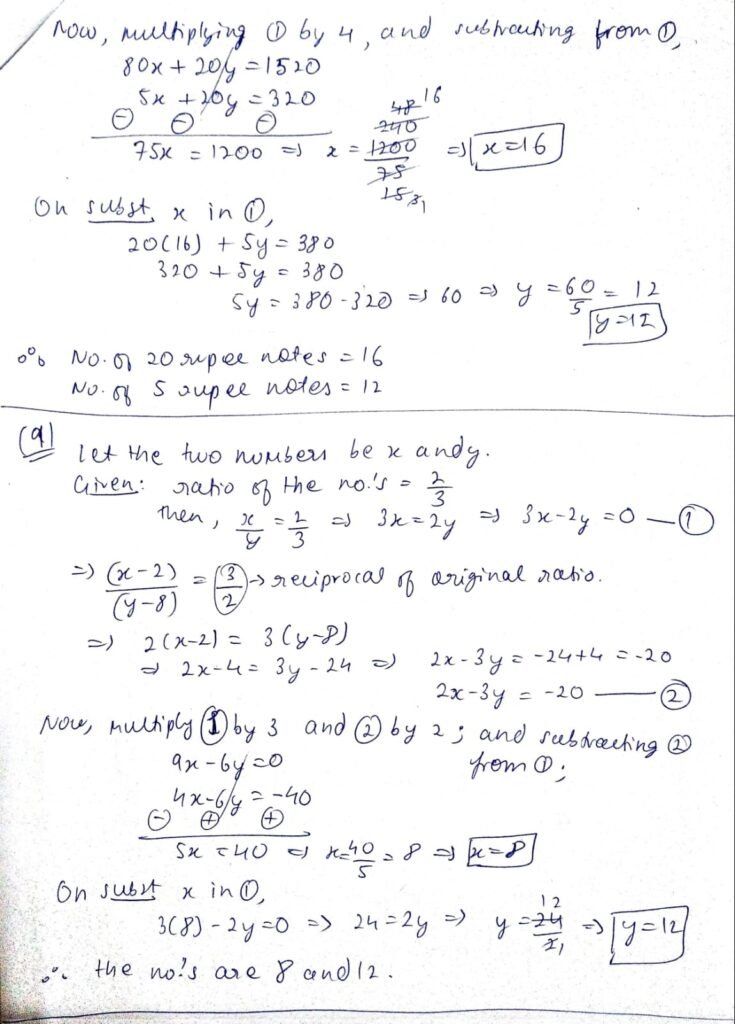 Now, multiplying ① by 4, and subtracting from ①,
80x + 20y = 1520
5x + 20y = 320
⊖ ⊖ ⊖
75x = 1200 ⇒ x = 1200/75 ⇒ x=16
240
48 16
15 3 1
On subst x in ①,
20(16) + 5y = 380
320 + 5y = 380
5y = 380 - 320 ⇒ 60 ⇒ y = 60/5 = 12
y=12
∴ No. of 20 rupee notes = 16
No. of 5 rupee notes = 12
(9)
Let the two numbers be x and y.
Given: ratio of the no.'s = 2/3
then, x/y = 2/3 ⇒ 3x = 2y ⇒ 3x-2y = 0 — ①
⇒ (x-2)/(y-8) = 3/2 → reciprocal of original ratio.
⇒ 2(x-2) = 3(y-8)
⇒ 2x-4 = 3y-24 ⇒ 2x-3y = -24+4 = -20
2x-3y = -20 — ②
Now, multiply ① by 3 and ② by 2; and subtracting ②
from ①;
9x-6y=0
4x-6y = -40
⊖ ⊕ ⊕
5x = 40 ⇒ x=40/5 = 8 ⇒ x=8
On subst x in ①,
3(8) - 2y=0 ⇒ 24=2y ⇒ y = 24/2 ⇒ y=12
12
1
∴ the no.'s are 8 and 12.